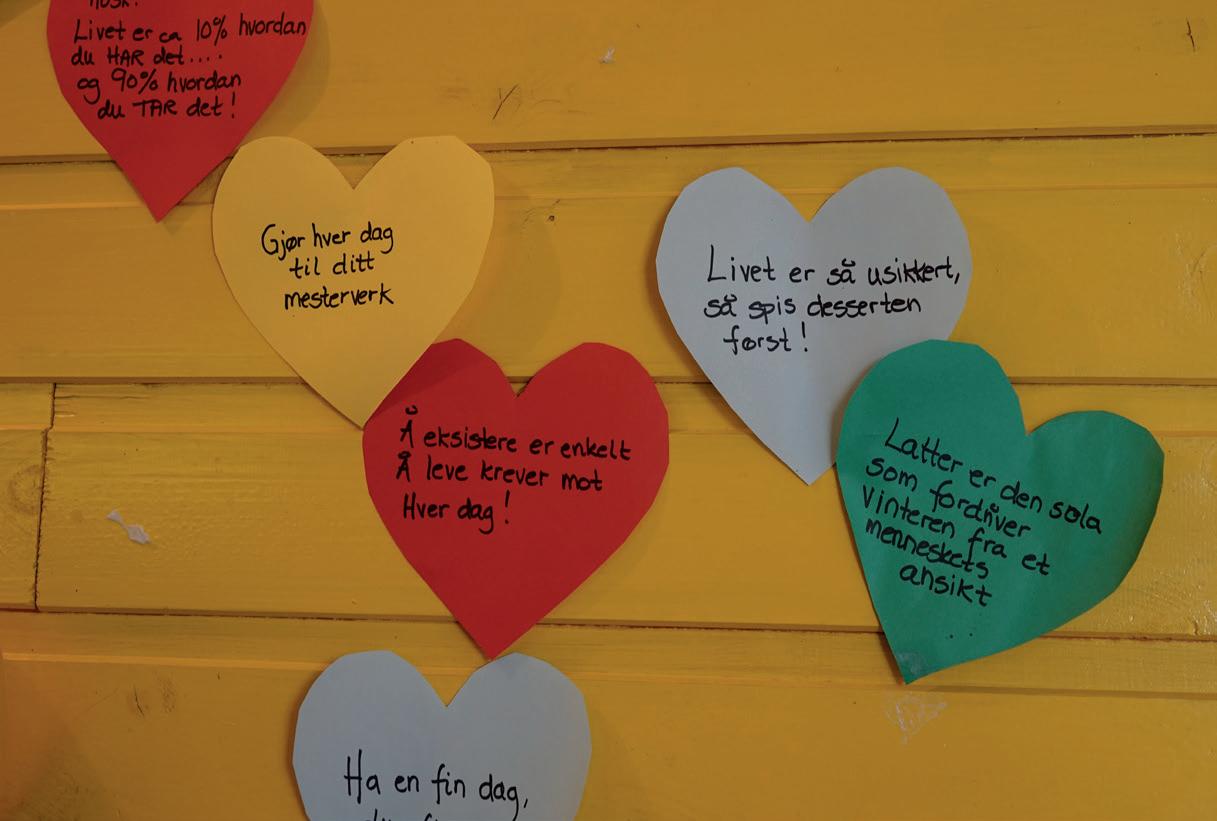 Livet er ca 10% hvordan
du HAR det....
og 90% hvordan
du TAR det!
Gjør hver dag
til ditt
mesterverk
Å eksistere er enkelt
Å leve krever mot
Hver dag!
Livet er så usikkert,
så spis desserten
først!
Latter er den sola
som fordriver
vinteren fra et
menneskets
ansikt
Ha en fin dag,